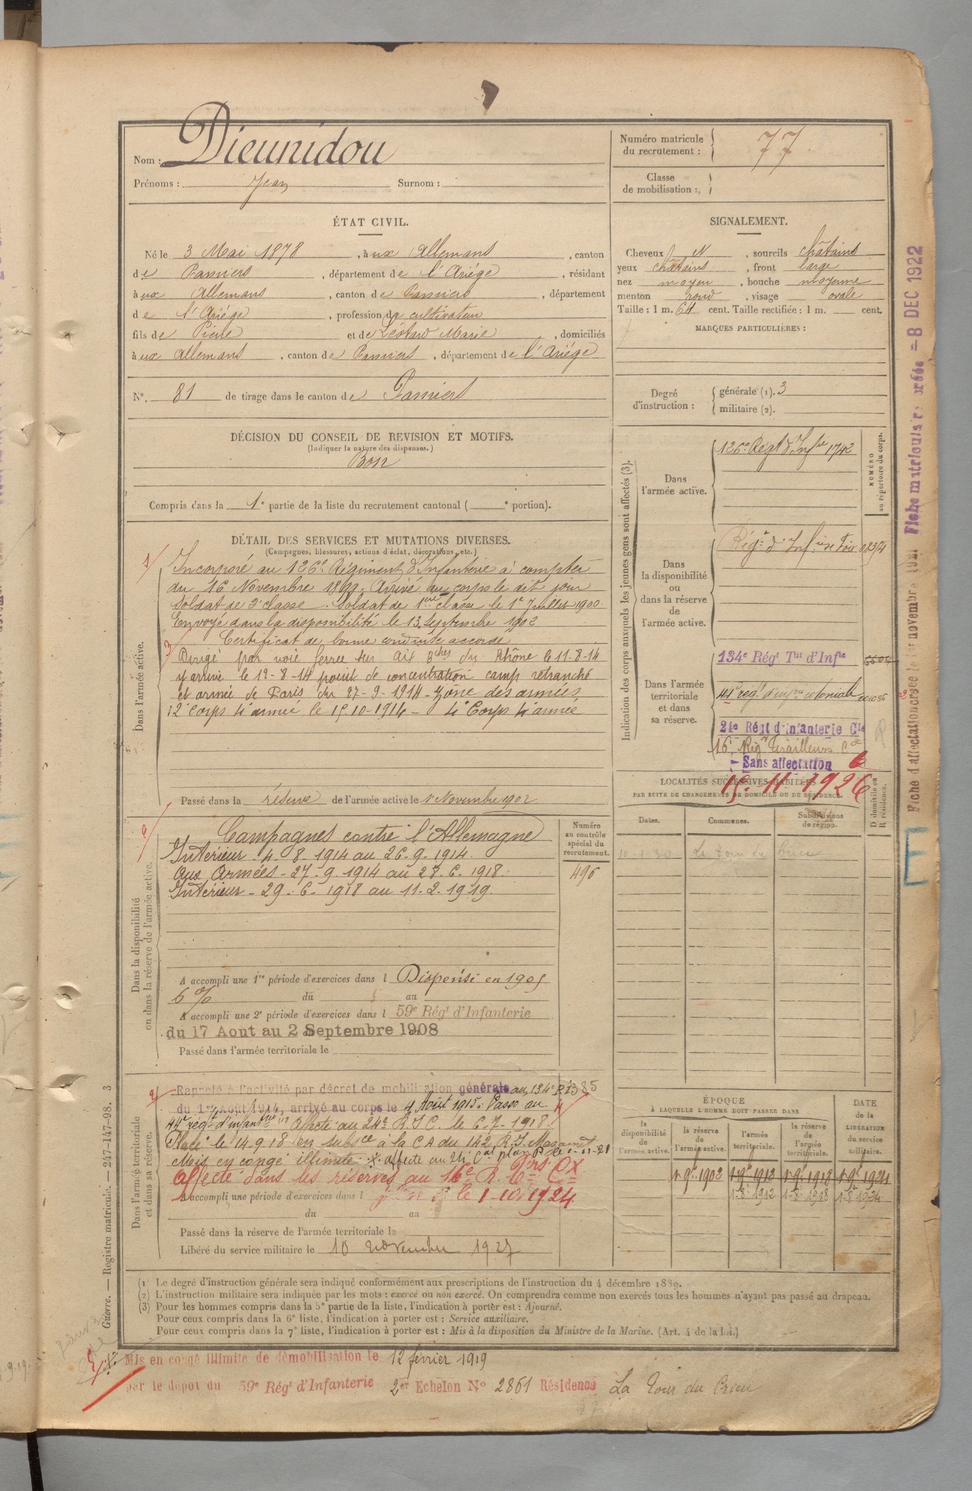 Nom : Dieunidou
Prénoms : Jean Surnom :
Numéro matricule du recrutement : 77
Classe de mobilisation :
ÉTAT CIVIL.
Né le 3 Mai 1878, à ux Allemans, canton
de Pamiers, département de l'Ariège, résidant
à ux Allemans, canton de Pamiers, département
de l'Ariège, profession de cultivateur
fils de Pierre et de Léotard Marie, domiciliés
à ux Allemans, canton de Pamiers, département de l'Ariège
N°. 81 de tirage dans le canton de Pamiers
SIGNALEMENT.
Cheveux N, sourcils châtains
yeux châtains, front large
nez moyen, bouche moyenne
menton rond, visage ovale
Taille : 1 m. 64 cent. Taille rectifiée : 1 m. cent.
MARQUES PARTICULIÈRES :
Degré d'instruction : générale (1). 3
militaire (2).
DÉCISION DU CONSEIL DE REVISION ET MOTIFS.
(Indiquer la nature des dispenses.)
Bon
Compris dans la 1e partie de la liste du recrutement cantonal ( e portion).
DÉTAIL DES SERVICES ET MUTATIONS DIVERSES.
(Campagnes, blessures, actions d'éclat, décorations, etc.)
Dans l'armée active.
Incorporé au 126e Régiment d'Infanterie à compter
du 16 Novembre 1899. Arrivé au corps le dit jour
Soldat de 2e classe. Soldat de 1ère classe le 1er Juillet 1900
Envoyé dans la disponibilité le 13 Septembre 1902
Certificat de bonne conduite accordé
Dirigé par voie ferrée sur Aix Bches du Rhône le 11-8-14
y arrivé le 12-8-14 point de concentration camp retranché
et armée de Paris du 27-9-1914 - zone des armées
12e corps 4e armée le 15-10-1914 - 4e Corps 4e armée
Passé dans la réserve de l'armée active le 1 Novembre 1902
Indication des corps auxquels les jeunes gens sont affectés (3).
NUMÉRO au répertoire du corps.
Dans l'armée active.
126e Régt d'Infie 1742
Dans la disponibilité ou dans la réserve de l'armée active.
Régt d'Infie de Foix
Dans l'armée territoriale et dans sa réserve.
134e Régt Tal d'Infie
44e régt d'infie coloniale
24e Régt d'Infanterie Cle
16e Régt Tirailleurs Cx
Sans affectation
15-11-1926
LOCALITÉS SUCCESSIVES HABITÉES
PAR SUITE DE CHANGEMENTS DE DOMICILE OU DE RÉSIDENCE.
Dates. Communes. Subdivisions de région. D domicile ou R résidence.
La Tour du Crieu
Dans la disponibilité ou dans la réserve de l'armée active.
Campagnes contre l'Allemagne
Intérieur - 4. 8. 1914 au 26. 9. 1914.
Aux Armées - 27. 9. 1914 au 28. 6. 1918.
Intérieur - 29. 6. 1918 au 11. 2. 1919.
Numéro au contrôle spécial du recrutement.
496
A accompli une 1re période d'exercices dans l Dispensé en 1905
6 % du au
A accompli une 2e période d'exercices dans l 59e Régt d'Infanterie
du 17 Aout au 2 Septembre 1908
Passé dans l'armée territoriale le
Dans l'armée territoriale et dans sa réserve.
Rappelé à l'activité par décret de mobilisation générale au 134e
du 1er Août 1914, arrivé au corps le 4 Août 1915. Passé au
44e régt d'infanterie Affecté au 24e R.I.C. le 6. 7. 1918.
le 14.9.18 en à la CA du 142e R.I. Mazamet
Mis en congé illimité. affecté au 24e Cal plan P le 1-11-21
Affecté dans les réserves au 16e R. Tirs Cx
A accompli une période d'exercices dans l le 1-10-1924
du au
Passé dans la réserve de l'armée territoriale le
Libéré du service militaire le 10 novembre 1927
ÉPOQUE
À LAQUELLE L'HOMME DOIT PASSER DANS
la disponibilité de l'armée active. la réserve de l'armée active. l'armée territoriale. la réserve de l'armée territoriale. DATE de la LIBÉRATION du service militaire.
(1) Le degré d'instruction générale sera indiqué conformément aux prescriptions de l'instruction du 4 décembre 1889.
(2) L'instruction militaire sera indiquée par les mots : exercé ou non exercé. On comprendra comme non exercés tous les hommes n'ayant pas passé au drapeau.
(3) Pour les hommes compris dans la 5e partie de la liste, l'indication à porter est : Ajourné.
Pour ceux compris dans la 6e liste, l'indication à porter est : Service auxiliaire.
Pour ceux compris dans la 7e liste, l'indication à porter est : Mis à la disposition du Ministre de la Marine. (Art. 4 de la loi.)
Mis en congé illimité de démobilisation le 12 février 1919
par le dépôt du 59e Régt d'Infanterie 2er Echelon N° 2861 Résidence La Tour du Crieu
Guerre. — Registre matricule. — 247-147-98. 3
8 DEC 1922